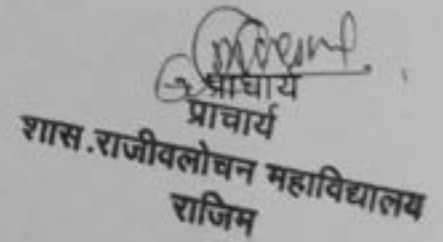 प्राचार्य
प्राचार्य
शास.राजीवलोचन महाविद्यालय
राजिम